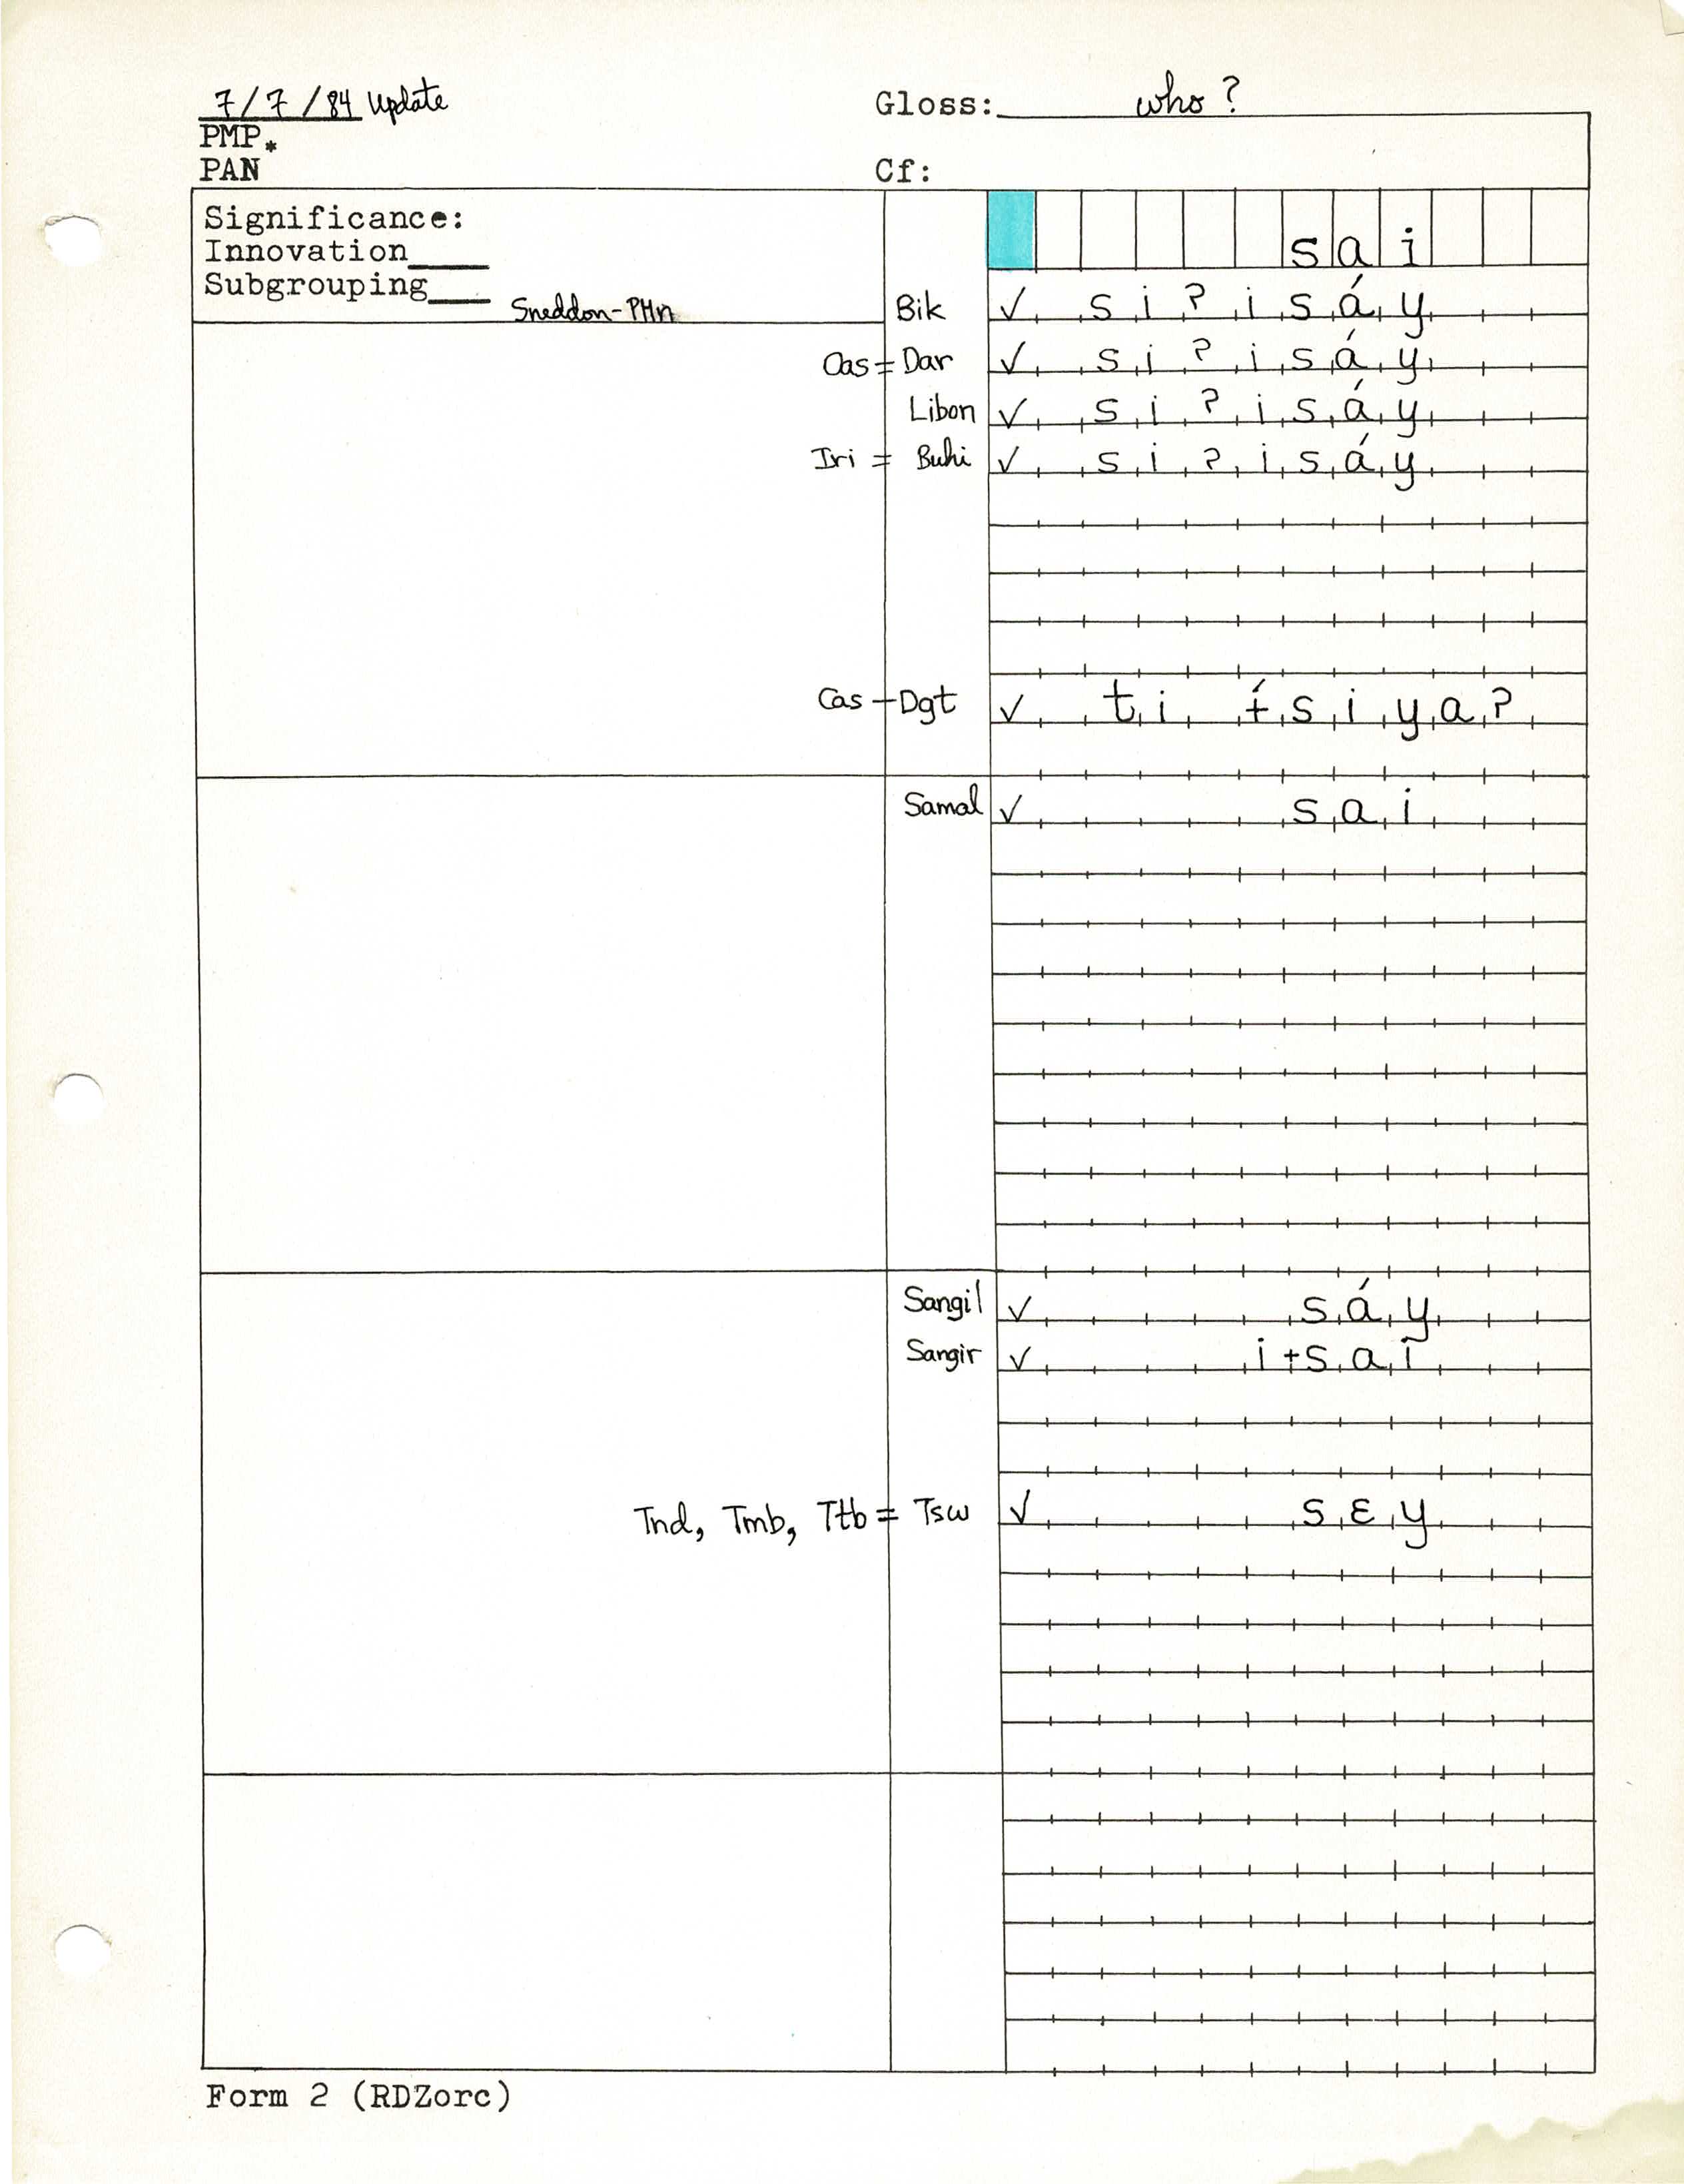 7/7/84 update
Gloss: who?
PMP*
PAN
Cf:
Significance:
Innovation____
Subgrouping____ Sneddon-PMn
s a i
Bik ✓ s i ʔ i s á y
Oas = Dar ✓ s i ʔ i s á y
Libon ✓ s i ʔ i s á y
Iri = Buhi ✓ s i ʔ i s á y
Cas - Dgt ✓ t i ɨ́ s i y a ʔ
Samal ✓ s a i
Sangil ✓ s á y
Sangir ✓ i + s a i
Tnd, Tmb, Ttb = Tsw ✓ s ɛ y
Form 2 (RDZorc)